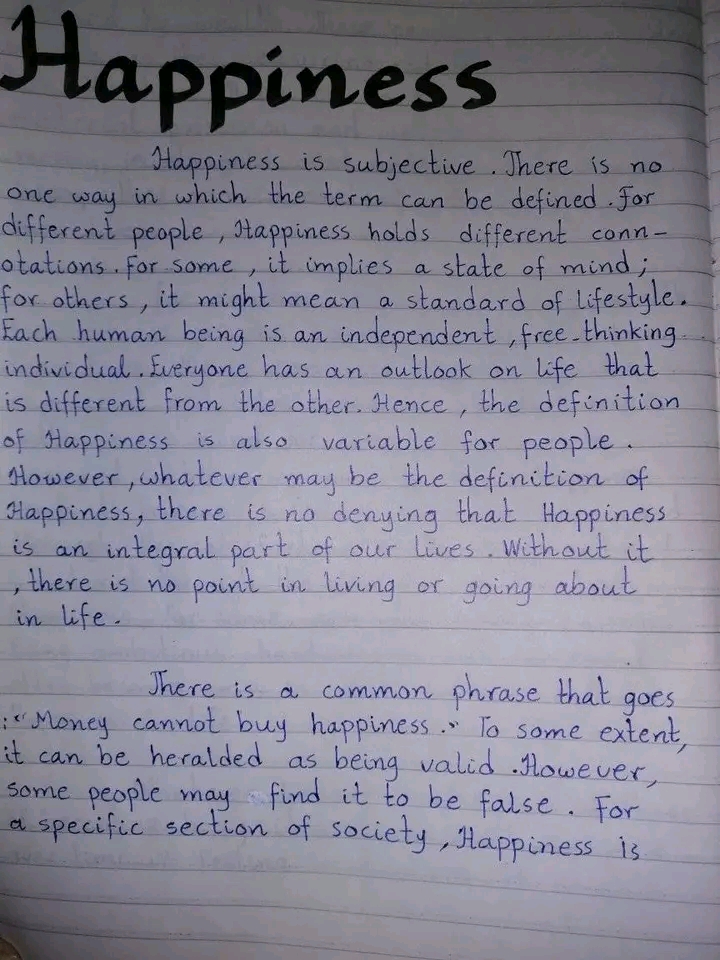 Happiness
Happiness is subjective. There is no
one way in which the term can be defined. For
different people, Happiness holds different conn-
otations. For some, it implies a state of mind;
for others, it might mean a standard of lifestyle.
Each human being is an independent, free-thinking
individual. Everyone has an outlook on life that
is different from the other. Hence, the definition
of Happiness is also variable for people.
However, whatever may be the definition of
Happiness, there is no denying that Happiness
is an integral part of our lives. Without it
, there is no point in living or going about
in life.
There is a common phrase that goes
:"Money cannot buy happiness." To some extent,
it can be heralded as being valid. However,
some people may find it to be false. For
a specific section of society, Happiness is